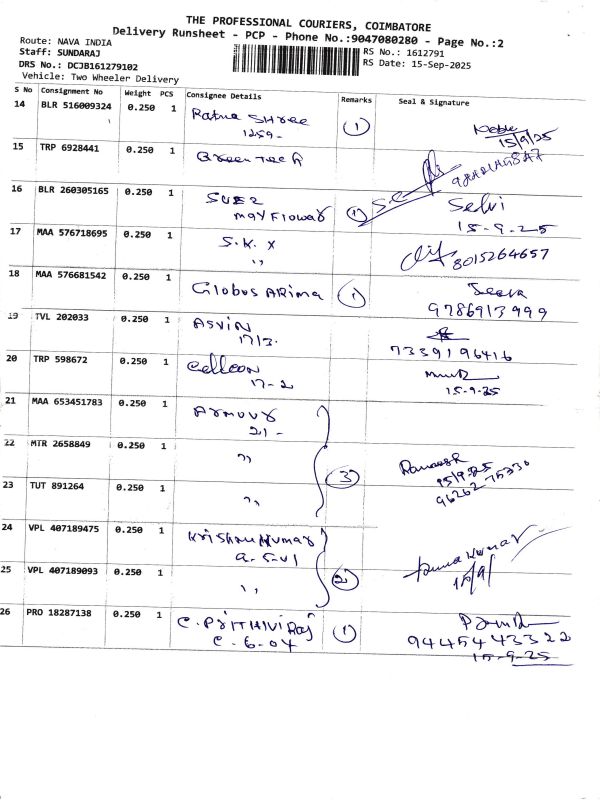 THE PROFESSIONAL COURIERS, COIMBATORE
Delivery Runsheet - PCP - Phone No.:9047080280 - Page No.:2
Route: NAVA INDIA
RS No.: 1612791
Staff: SUNDARAJ
RS Date: 15-Sep-2025
DRS No.: DCJB161279102
Vehicle: Two Wheeler Delivery
S No Consignment No Weight PCS Consignee Details Remarks Seal & Signature
14 BLR 516009324 0.250 1 Ratna SHree 1
1259-
15/9/25
15 TRP 6928441 0.250 1 Green Tech
16 BLR 260305165 0.250 1 SUEZ 1 Selvi
mayFlowar 15-9-25
17 MAA 576718695 0.250 1 S.K. X 8015264657
,,
18 MAA 576681542 0.250 1 Globus ARima 1
9786913999
19 TVL 202033 0.250 1 ASVIN
1713. 7339196416
20 TRP 598672 0.250 1
17-2 15-9-25
21 MAA 653451783 0.250 1
21-
22 MTR 2658849 0.250 1 ,,
3 15/9/25
23 TUT 891264 0.250 1 ,, 9626275330
24 VPL 407189475 0.250 1 Krishnakumar
a-5-01
25 VPL 407189093 0.250 1 ,, 2 15/9/
26 PRO 18287138 0.250 1 C. PJITHIVIRaj 1
C-6-04 9445443322
15-9-25